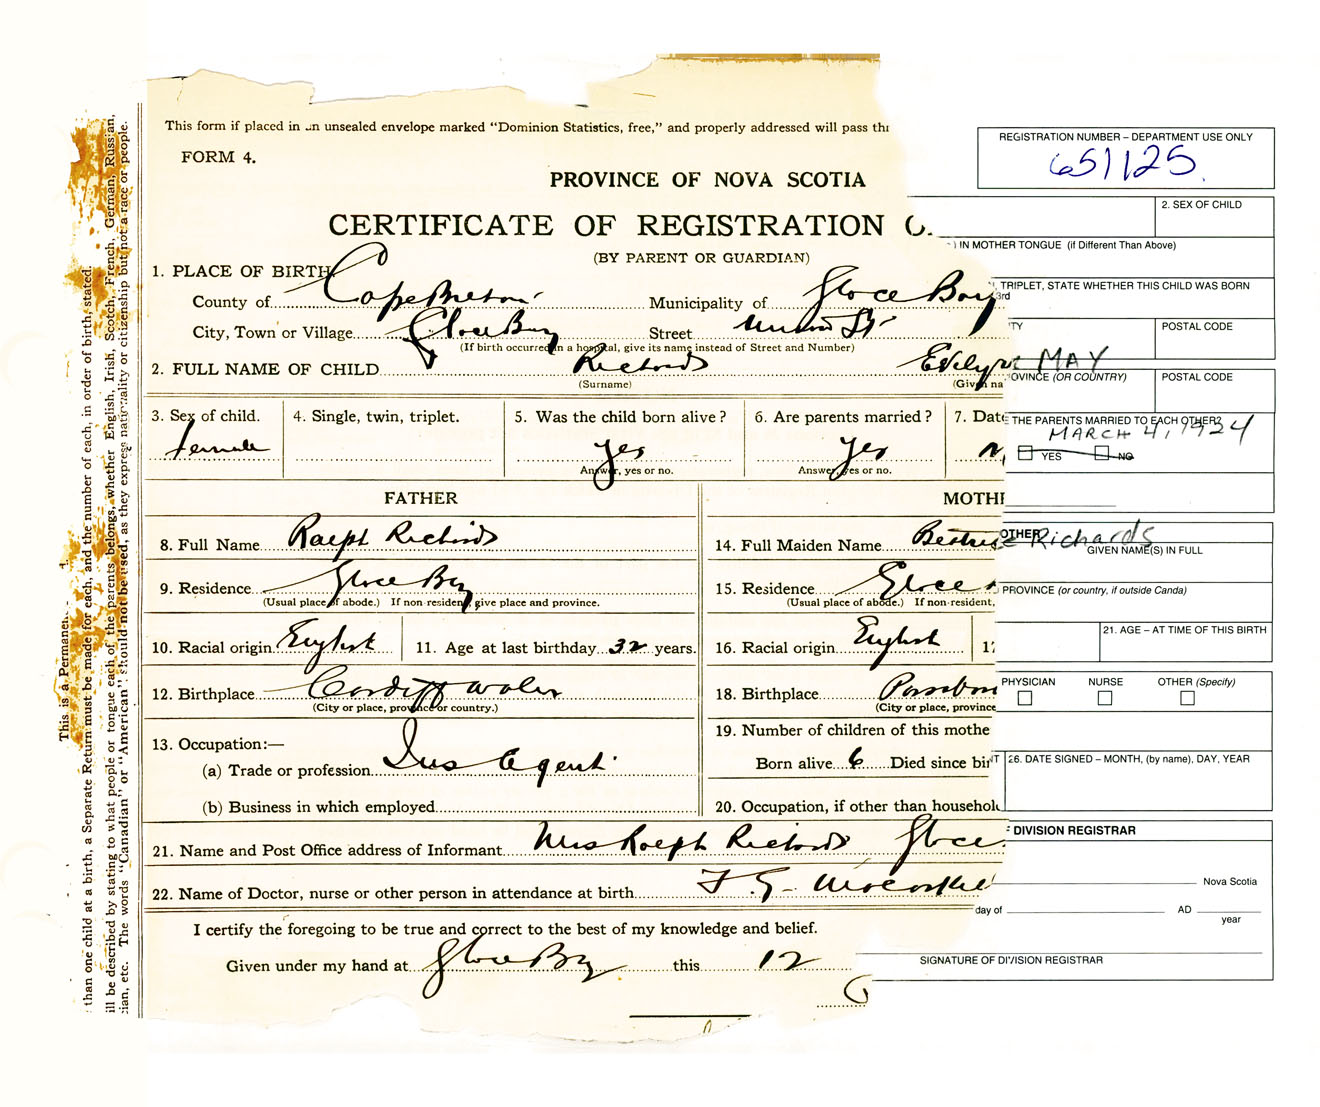 This form if placed in an unsealed envelope marked "Dominion Statistics, free," and properly addressed will pass thr
REGISTRATION NUMBER – DEPARTMENT USE ONLY
651125
FORM 4.
PROVINCE OF NOVA SCOTIA
CERTIFICATE OF REGISTRATION O
2. SEX OF CHILD
) IN MOTHER TONGUE (if Different Than Above)
(BY PARENT OR GUARDIAN)
1. PLACE OF BIRTH
TRIPLET, STATE WHETHER THIS CHILD WAS BORN
3rd
County of Cape Breton Municipality of Glace Bay
City, Town or Village Glace Bay Street Minto St
TY POSTAL CODE
(If birth occurred in a hospital, give its name instead of Street and Number)
2. FULL NAME OF CHILD Richards Evelyn MAY
(Surname) (Given na
OVINCE (OR COUNTRY) POSTAL CODE
3. Sex of child. 4. Single, twin, triplet. 5. Was the child born alive? 6. Are parents married? 7. Date
E THE PARENTS MARRIED TO EACH OTHER?
MARCH 4, 1924
female yes yes
YES NO
Answer, yes or no. Answer, yes or no.
FATHER MOTHE
8. Full Name Ralph Richards 14. Full Maiden Name Beatrice Richards
OTHER
GIVEN NAME(S) IN FULL
9. Residence Glace Bay 15. Residence Glace
PROVINCE (or country, if outside Canda)
(Usual place of abode.) If non-resident, give place and province. (Usual place of abode.) If non-resident,
21. AGE – AT TIME OF THIS BIRTH
10. Racial origin English 11. Age at last birthday 32 years. 16. Racial origin English 17
12. Birthplace Cardiff Wales 18. Birthplace
PHYSICIAN NURSE OTHER (Specify)
(City or place, province or country.) (City or place, province
13. Occupation:— 19. Number of children of this mothe
(a) Trade or profession Ins Agent Born alive 6 Died since bir
26. DATE SIGNED – MONTH, (by name), DAY, YEAR
(b) Business in which employed 20. Occupation, if other than househol
DIVISION REGISTRAR
21. Name and Post Office address of Informant Mrs Ralph Richards Glace
22. Name of Doctor, nurse or other person in attendance at birth
Nova Scotia
day of AD
year
I certify the foregoing to be true and correct to the best of my knowledge and belief.
Given under my hand at Glace Bay this 12
SIGNATURE OF DIVISION REGISTRAR
This is a Permanen
than one child at a birth, a Separate Return must be made for each, and the number of each, in order of birth, stated.
ill be described by stating to what people or tongue each of the parents belongs, whether English, Irish, Scotch, French, German, Russian,
ian, etc. The words "Canadian" or "American" should not be used, as they express nationality or citizenship but not a race or people.